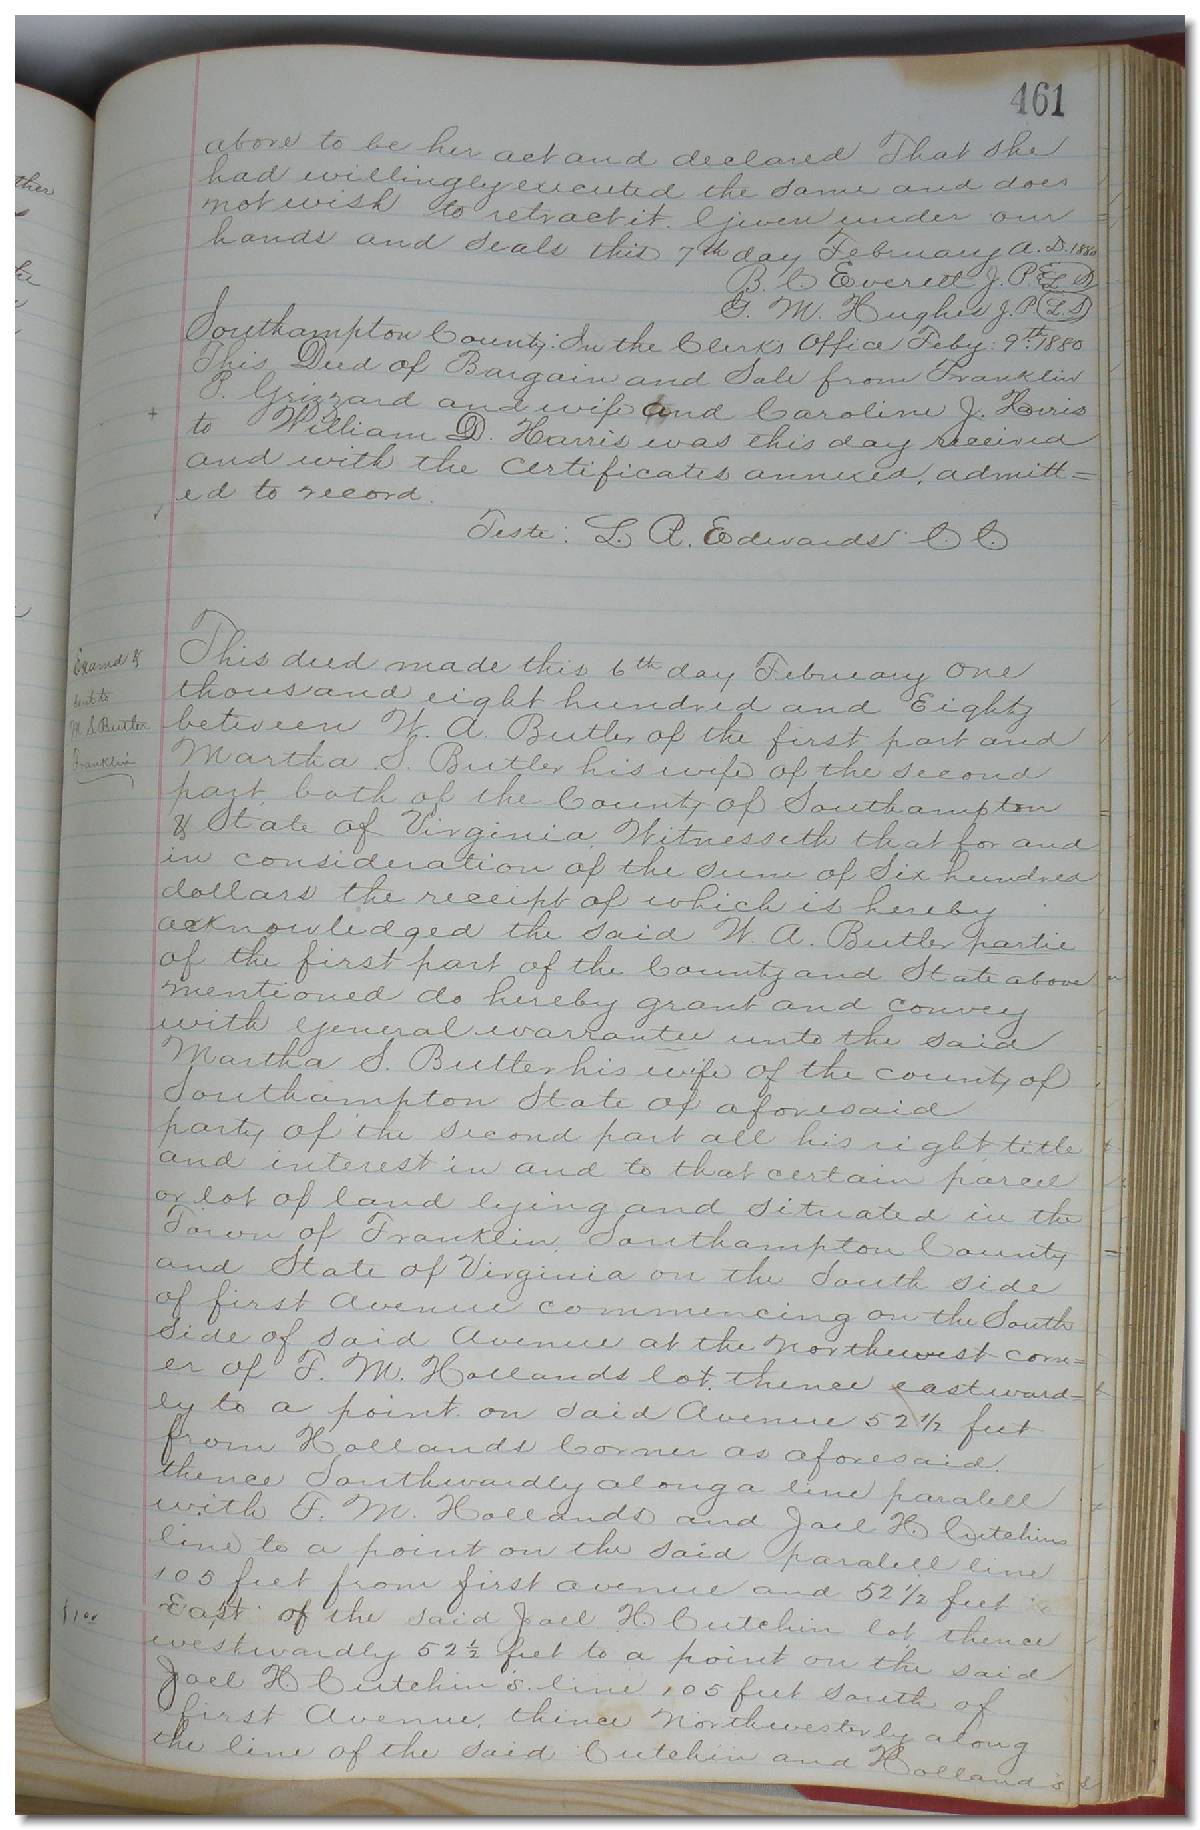 461
above to be her act and declared That she
had willingly executed the same and does
not wish to retract it. Given under our
hands and seals this 7th day February A. D. 1880
B. C Everett J. P. (L S)
G. M. Hughes J. P (L. S)
Southampton County: In the Clerks Office Feby: 9th. 1880
This Deed of Bargain and Sale from Franklin
P. Grizzard and wife and Caroline J. Harris
to William D. Harris was this day received
and with the certificates annexed, admitt=
ed to record.
Teste: L. R. Edwards C. C.
Examd &
sent to
M S Butler
Franklin
This deed made this 6th day February one
thousand eight hundred and Eighty
between W. A. Butler of the first part and
Martha S. Butler his wife of the second
part, both of the County of Southampton
& State of Virginia, Witnesseth that for and
in consideration of the sum of Six hundred
dollars the receipt of which is hereby
acknowledged the said W. A. Butler partie
of the first part of the County and State above
mentioned do hereby grant and convey
with General warrantee unto the said
Martha S. Butler his wife of the county of
Southampton State of aforesaid
party of the second part all his right title
and interest in and to that certain parcel
or lot of land lying and situated in the
Town of Franklin, Southampton County
and State of Virginia on the South side
of first Avenue commencing on the South
side of said Avenue at the Northwest corn=
er of F. M. Hollands lot, thence eastward=
ly to a point on said Avenue 52 1/2 feet
from Hollands Corner as aforesaid.
thence Southwardly along a line paralell
with F. M. Hollands and Joel H. Cutchins
line to a point on the said paralell line
105 feet from first avenue and 52 1/2 feet
East of the said Joel H. Cutchin lot, thence
westwardly 52 1/2 feet to a point on the said
Joel H. Cutchin's line 105 feet South of
first Avenue, thence Northwesterly along
the line of the said Cutchin and Holland's